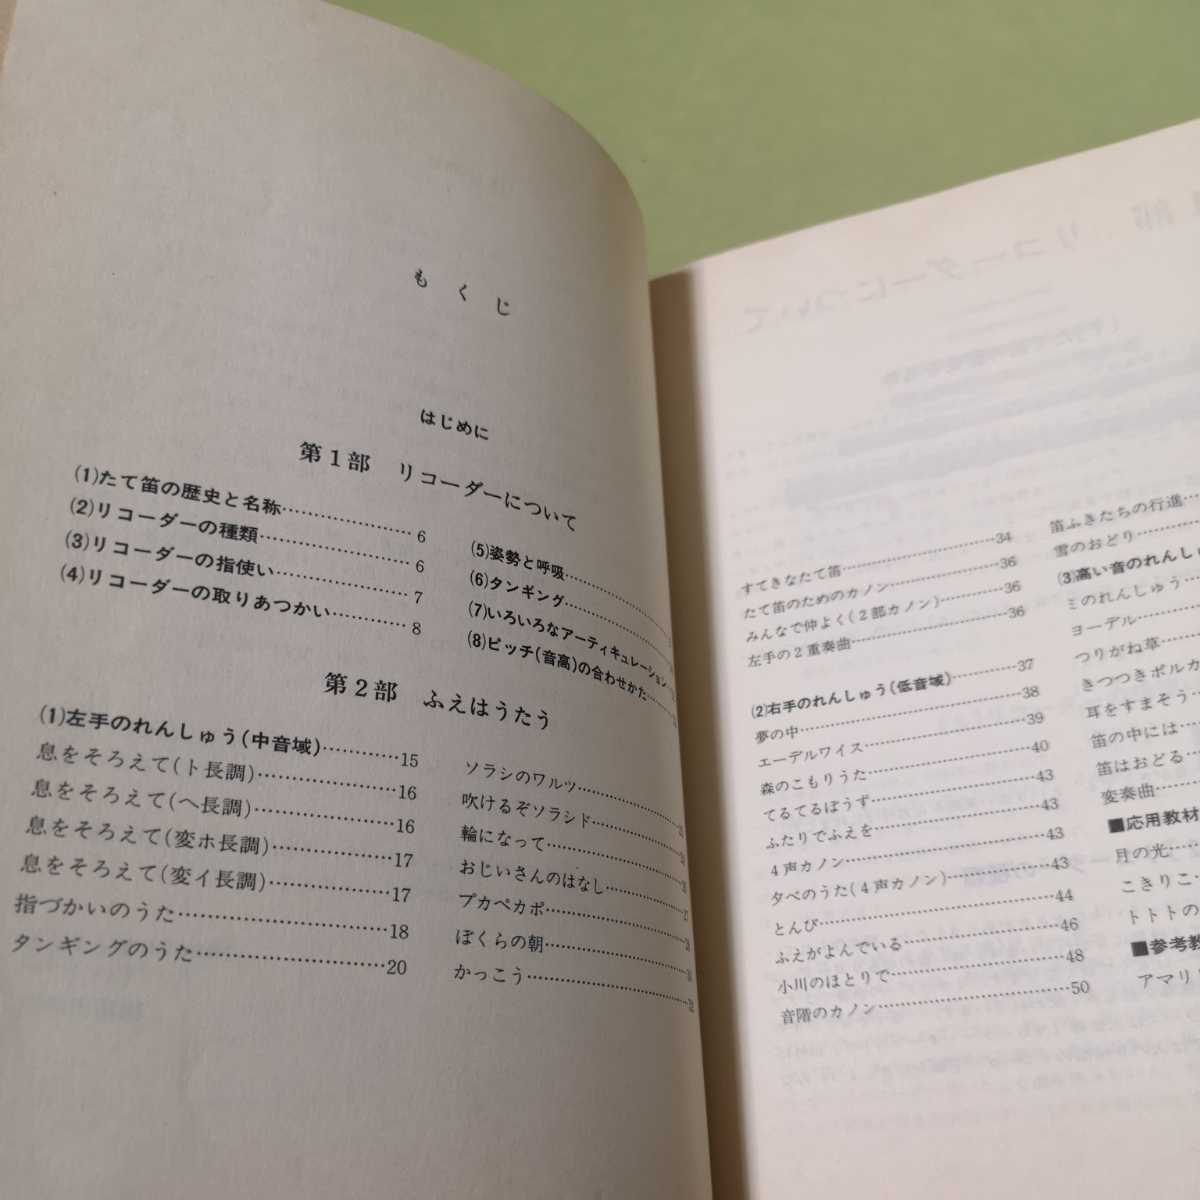 もくじ
はじめに
第1部 リコーダーについて
(1)たて笛の歴史と名称……………… 6
(2)リコーダーの種類……………… 6
(3)リコーダーの指使い……………… 7
(4)リコーダーの取りあつかい………… 8
(5)姿勢と呼吸………………
(6)タンギング………………
(7)いろいろなアーティキュレーション
(8)ピッチ(音高)の合わせかた………
第2部 ふえはうたう
(1)左手のれんしゅう(中音域)…………15
息をそろえて(ト長調)………………16
息をそろえて(ヘ長調)………………16
息をそろえて(変ホ長調)………………17
息をそろえて(変イ長調)………………17
指づかいのうた………………18
タンギングのうた………………20
ソラシのワルツ………………
吹けるぞソラシド………………
輪になって………………
おじいさんのはなし………………
プカペカポ………………
ぼくらの朝………………
かっこう………………
すてきなたて笛………………34
たて笛のためのカノン………………36
みんなで仲よく(2部カノン)…………36
左手の2重奏曲………………36
(2)右手のれんしゅう(低音域)…………37
夢の中………………38
エーデルワイス………………39
森のこもりうた………………40
てるてるぼうず………………43
ふたりでふえを………………43
4声カノン………………43
夕べのうた(4声カノン)…………43
とんび………………44
ふえがよんでいる………………46
小川のほとりで………………48
音階のカノン………………50
笛ふきたちの行進…
雪のおどり………
(3)高い音のれんしゅ
ミのれんしゅう……
ヨーデル………
つりがね草………
きつつきポルカ
耳をすまそう…
笛の中には……
笛はおどる……
変奏曲………
■応用教材
月の光………
こきりこ……
トトトの
■参考教
アマリ